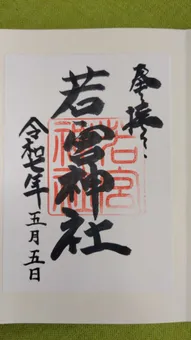 奉拝
若宮神社
令和七年五月五日
若宮
神社